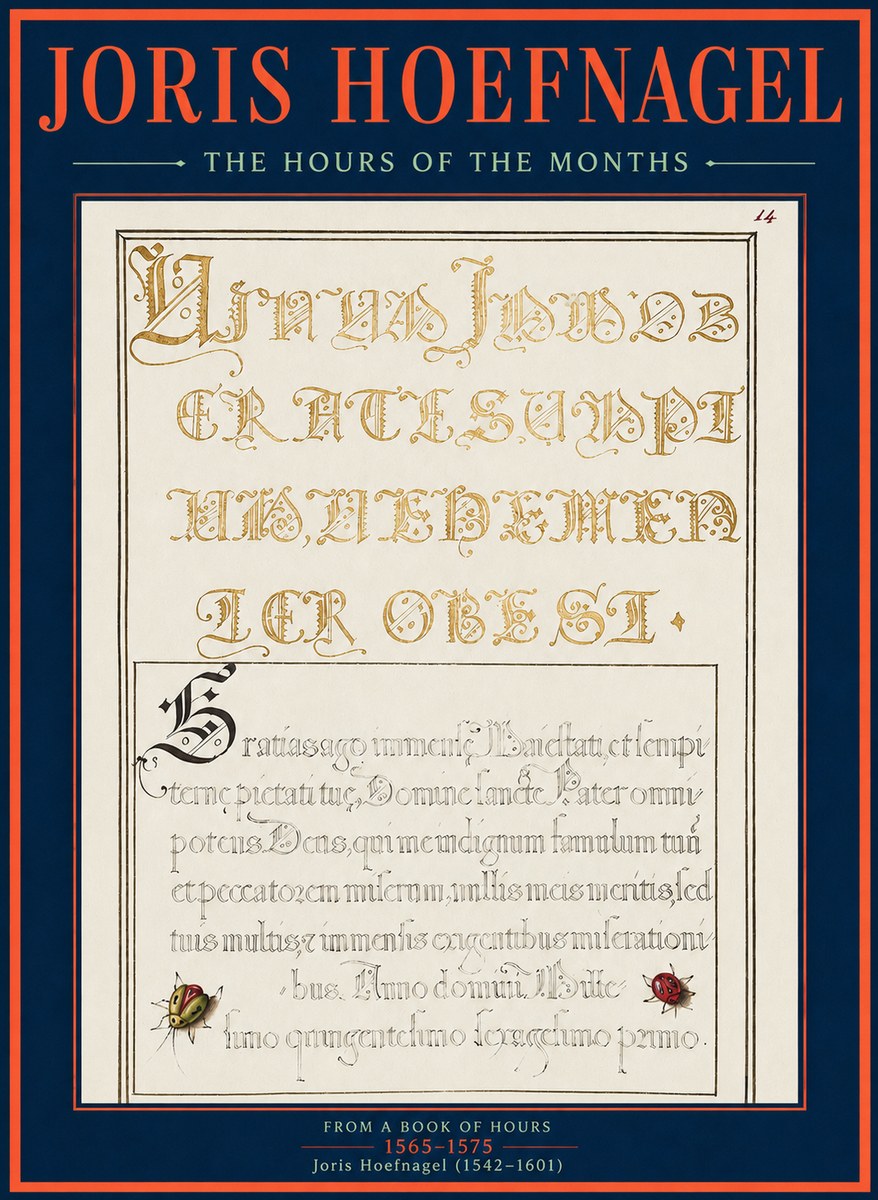 JORIS HOEFNAGEL
THE HOURS OF THE MONTHS
14
UINUM IMMOD
ERATE SUMPT
UM, UEHEMEN
TER OBEST.
Gratias ago immensę Maiestati, et sempi=
ternę pietati tuę, Domine sancte Pater omni=
potens Deus, qui me indignum famulum tuū
et peccatorem miserum, nullis meis meritis, sed
tuis multis, et immensis exigentibus miserationi=
bus. Anno domini Mille=
simo quingentesimo sexagesimo primo.
FROM A BOOK OF HOURS
1565–1575
Joris Hoefnagel (1542–1601)